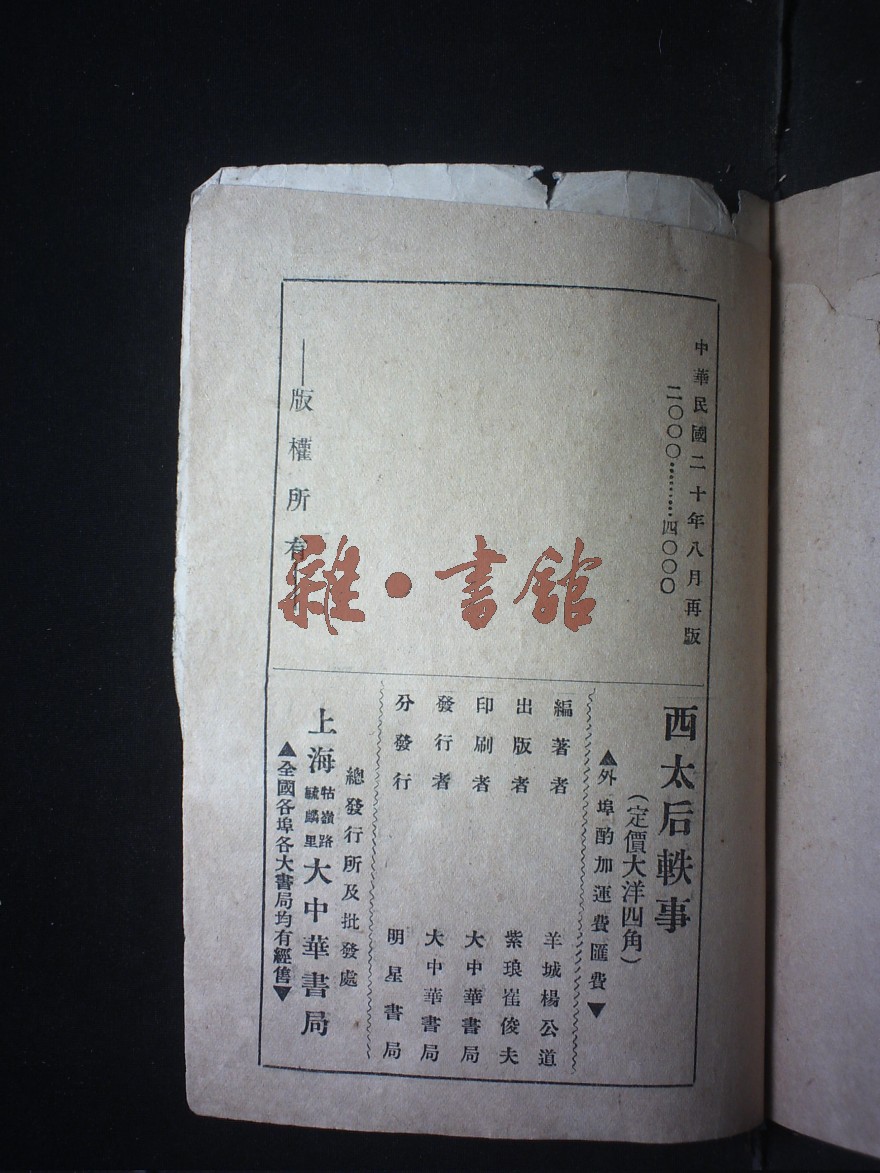 中華民國二十年八月再版
二〇〇〇………四〇〇〇
—版權所有
雜·書館
西太后軼事
(定價大洋四角)
▲外埠酌加運費匯費▼
編著者 羊城楊公道
出版者 紫琅崔俊夫
印刷者 大中華書局
發行者 大中華書局
分發行 明星書局
總發行所及批發處
上海牯嶺路毓麟里大中華書局
▲全國各埠各大書局均有經售▼